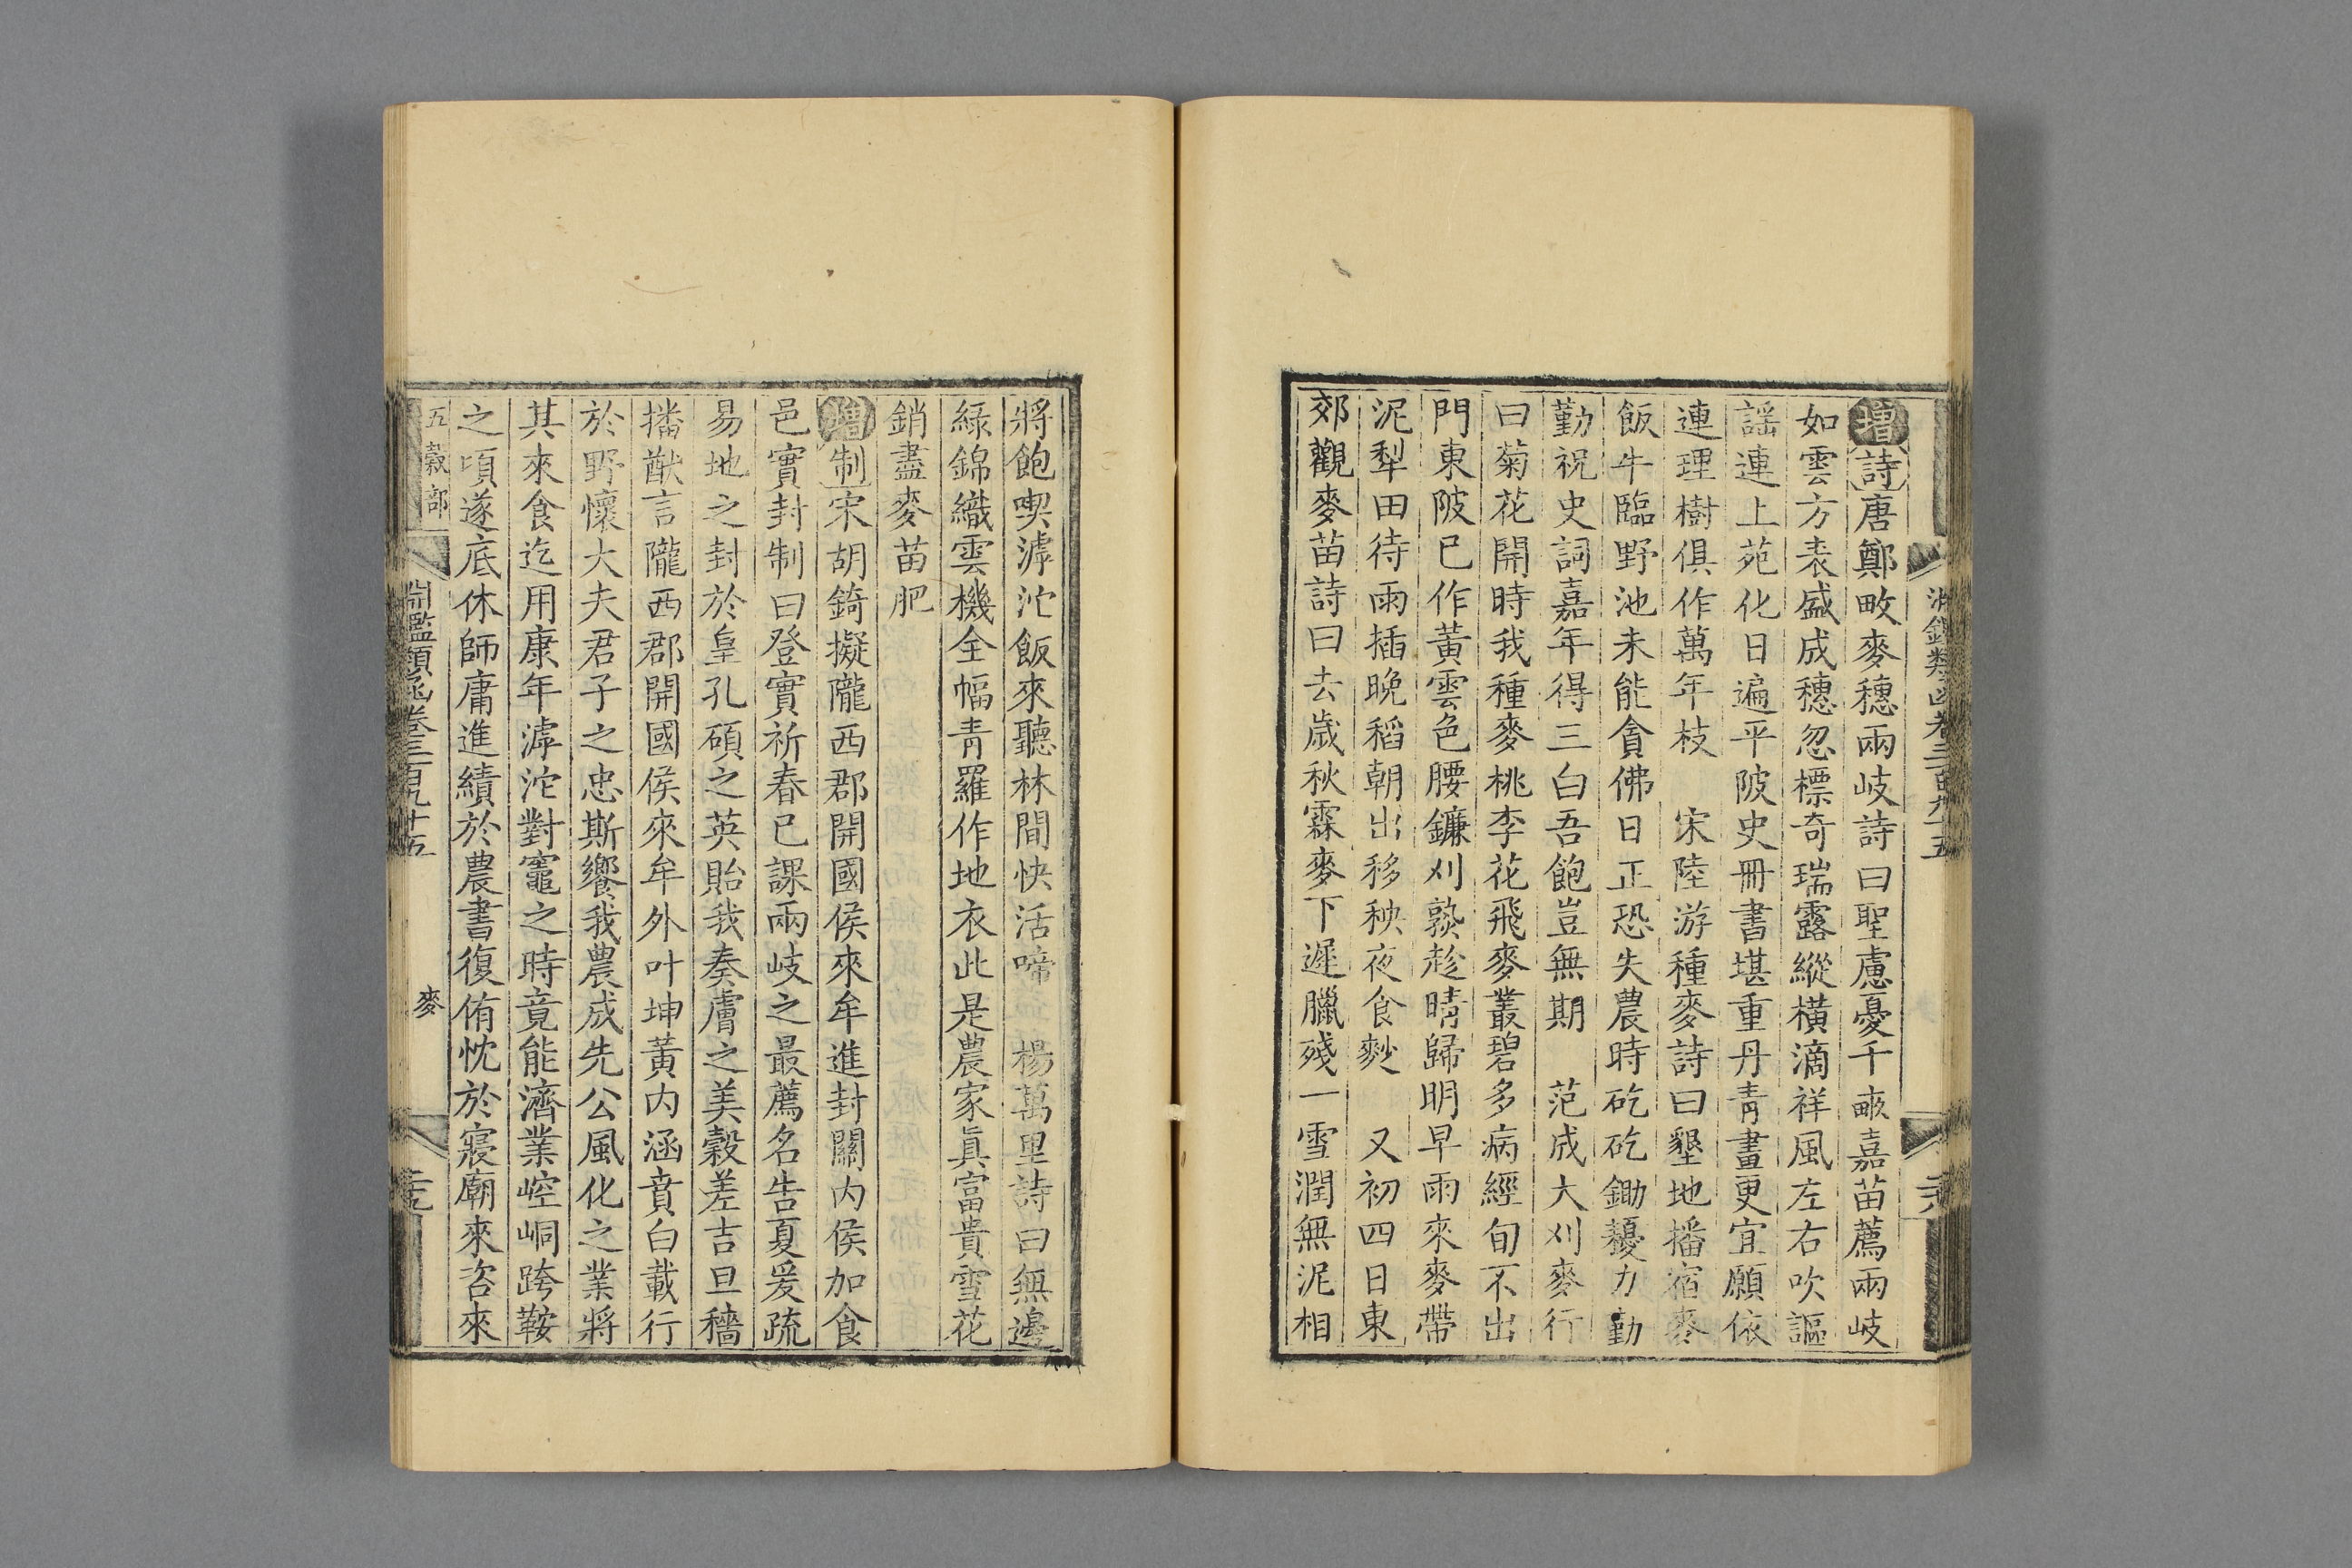 淵鑑類函卷三百九十五
增詩唐鄭畋麥穗兩岐詩曰聖慮憂千畝嘉苗薦兩岐
如雲方表盛成穗忽標奇瑞露縱橫滴祥風左右吹謳
謡連上苑化日遍平陂史冊書堪重丹青畫更宜願依
連理樹俱作萬年枝 宋陸游種麥詩曰墾地播宿麥
飯牛臨野池未能貪佛日正恐失農時矻矻鋤耰力勤
勤祝史詞嘉年得三白吾飽豈無期 范成大刈麥行
曰菊花開時我種麥桃李花飛麥叢碧多病經旬不出
門東陂已作黃雲色腰鐮刈熟趁晴歸明早雨來麥帶
泥犁田待雨插晚稻朝出移秧夜食麨 又初四日東
郊觀麥苗詩曰去歲秋霖麥下遲臘殘一雪潤無泥相
將飽喫滹沱飯來聽林間快活啼 楊萬里詩曰無邊
綠錦織雲機全幅青羅作地衣此是農家眞富貴雪花
銷盡麥苗肥
增制宋胡錡擬隴西郡開國侯來牟進封關內侯加食
邑實封制曰登實祈春已課兩岐之最薦名告夏爰疏
易地之封於皇孔碩之英貽我奏膚之美穀差吉旦穡
播猷言隴西郡開國侯來牟外叶坤黃內涵賁白載行
於野懷大夫君子之忠斯饗我農成先公風化之業將
其來食迄用康年滹沱對竈之時竟能濟業崆峒跨鞍
之頃遂底休師庸進績於農書復侑忱於寢廟來咨來
五穀部
淵鑑類函卷三百九十五
麥